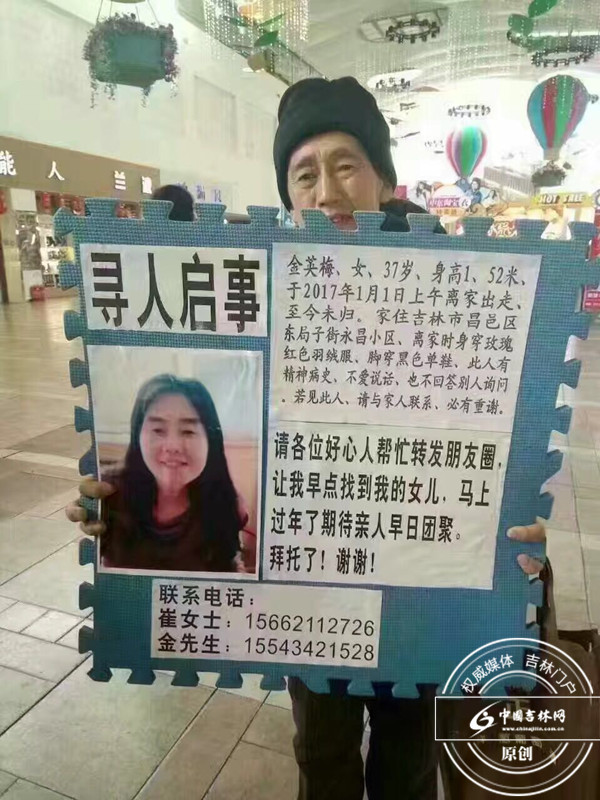 能人兰
HOT SALE
寻人启事
金英梅、女、37岁、身高1、52米、
于2017年1月1日上午离家出走、
至今未归。家住吉林市昌邑区
东局子街永昌小区、离家时身穿玫瑰
红色羽绒服、脚穿黑色单鞋、此人有
精神病史、不爱说话、也不回答别人询问
。若见此人、请与家人联系、必有重谢。
请各位好心人帮忙转发朋友圈，
让我早点找到我的女儿，马上
过年了期待亲人早日团聚。
拜托了！谢谢！
联系电话：
崔女士：15662112726
金先生：15543421528
权威媒体 吉林门户
中国吉林网
www.chinajilin.com.cn
原创